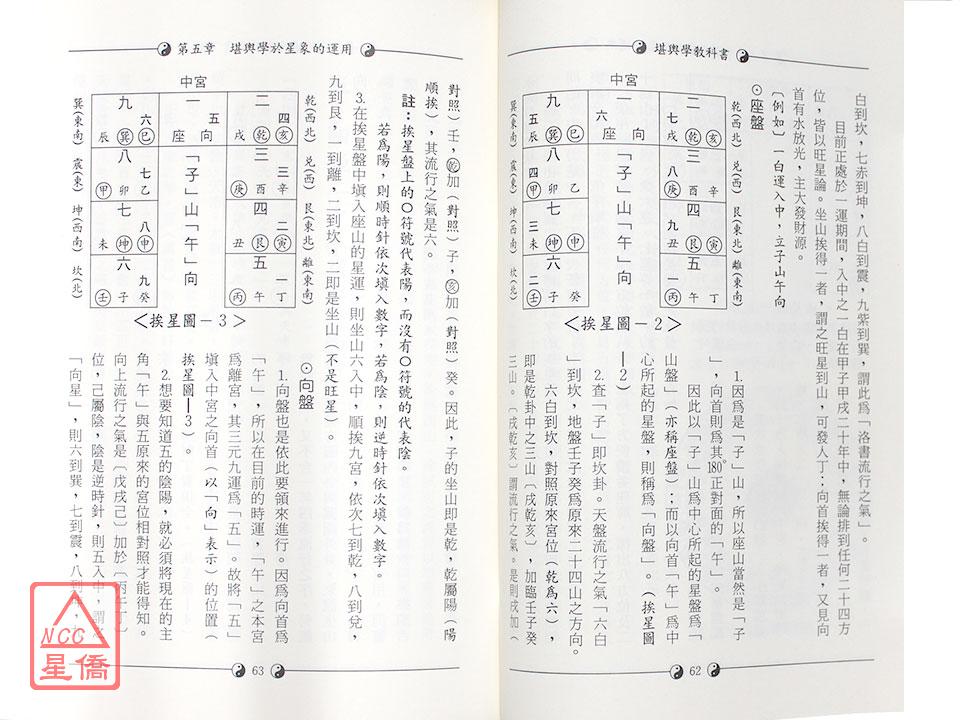 堪輿學教科書
白到坎，七赤到坤，八白到震，九紫到巽，謂此爲「洛書流行之氣」。
目前正處於一運期間，入中之一白在甲子甲戌二十年中，無論排到任何二十四方
位，皆以旺星論。坐山挨得一者，謂之旺星到山，可發人丁；向首挨得一者，又見向
首有水放光，主大發財源。
〔例如〕一白運入中，立子山午向
⊙座盤
乾(西北) 兌(西) 艮(東北) 離(東南)
二 七 戌 乾 亥
三 八 庚 酉 辛
四 九 丑 艮 寅
五 一 丙 午 丁
中宮
一
六
座 向
「子」山「午」向
九 五 辰 巽 巳
八 四 甲 卯 乙
七 三 未 坤 申
六 二 壬 子 癸
巽(東南) 震(東) 坤(西南) 坎(北)
＜挨星圖－2＞
1.因爲是「子」山，所以座山當然是「子
」，向首則爲其180°正對面的「午」。
因此以「子」山爲中心所起的星盤爲「
山星盤」（亦稱座盤）；而以向首「午」爲中
心所起的星盤，則稱爲「向盤」。（挨星圖
—2）
2.查「子」即坎卦。天盤流行之氣「六白
」到坎，地盤壬子癸爲原來二十四山之方向。
六白到坎，對照原來宮位（乾爲六），
即是乾卦中之三山〔戌乾亥〕，加臨壬子癸
三山。〔戌乾亥〕謂流行之氣。是則戌加（
62
第五章　堪輿學於星象的運用
對照）壬，乾加（對照）子，亥加（對照）癸。因此，子的坐山即是乾，乾屬陽（陽
順挨），其流行之氣是六。
註：挨星盤上的○符號代表陽，而沒有○符號的代表陰。
若爲陽，則順時針依次填入數字，若爲陰，則逆時針依次填入數字。
3.在挨星盤中填入座山的星運，則坐山六入中，順挨九宮，依次七到乾，八到兌，
九到艮，一到離，二到坎，二即是坐山（不是旺星）。
乾(西北) 兌(西) 艮(東北) 離(東南)
二 四 戌 乾 亥
三 三 庚 酉 辛
四 二 丑 艮 寅
五 一 丙 午 丁
中宮
一
五
座 向
「子」山「午」向
九 六 辰 巽 巳
八 七 甲 卯 乙
七 八 未 坤 申
六 九 壬 子 癸
巽(東南) 震(東) 坤(西南) 坎(北)
＜挨星圖－3＞
⊙向盤
1.向盤也是依此要領來進行。因爲向首爲
「午」，所以在目前的時運，「午」之本宮
爲離宮，其三元九運爲「五」。故將「五」
填入中宮之向首（以「向」表示）的位置（
挨星圖—3）。
2.想要知道五的陰陽，就必須將現在的主
角「午」與五原來的宮位相對照才能得知。
向上流行之氣是〔戊戌己〕加於〔丙午丁〕
位，己屬陰，陰是逆時針，則五入中，謂之
「向星」，則六到巽，七到震，八到
63
NCC
星僑